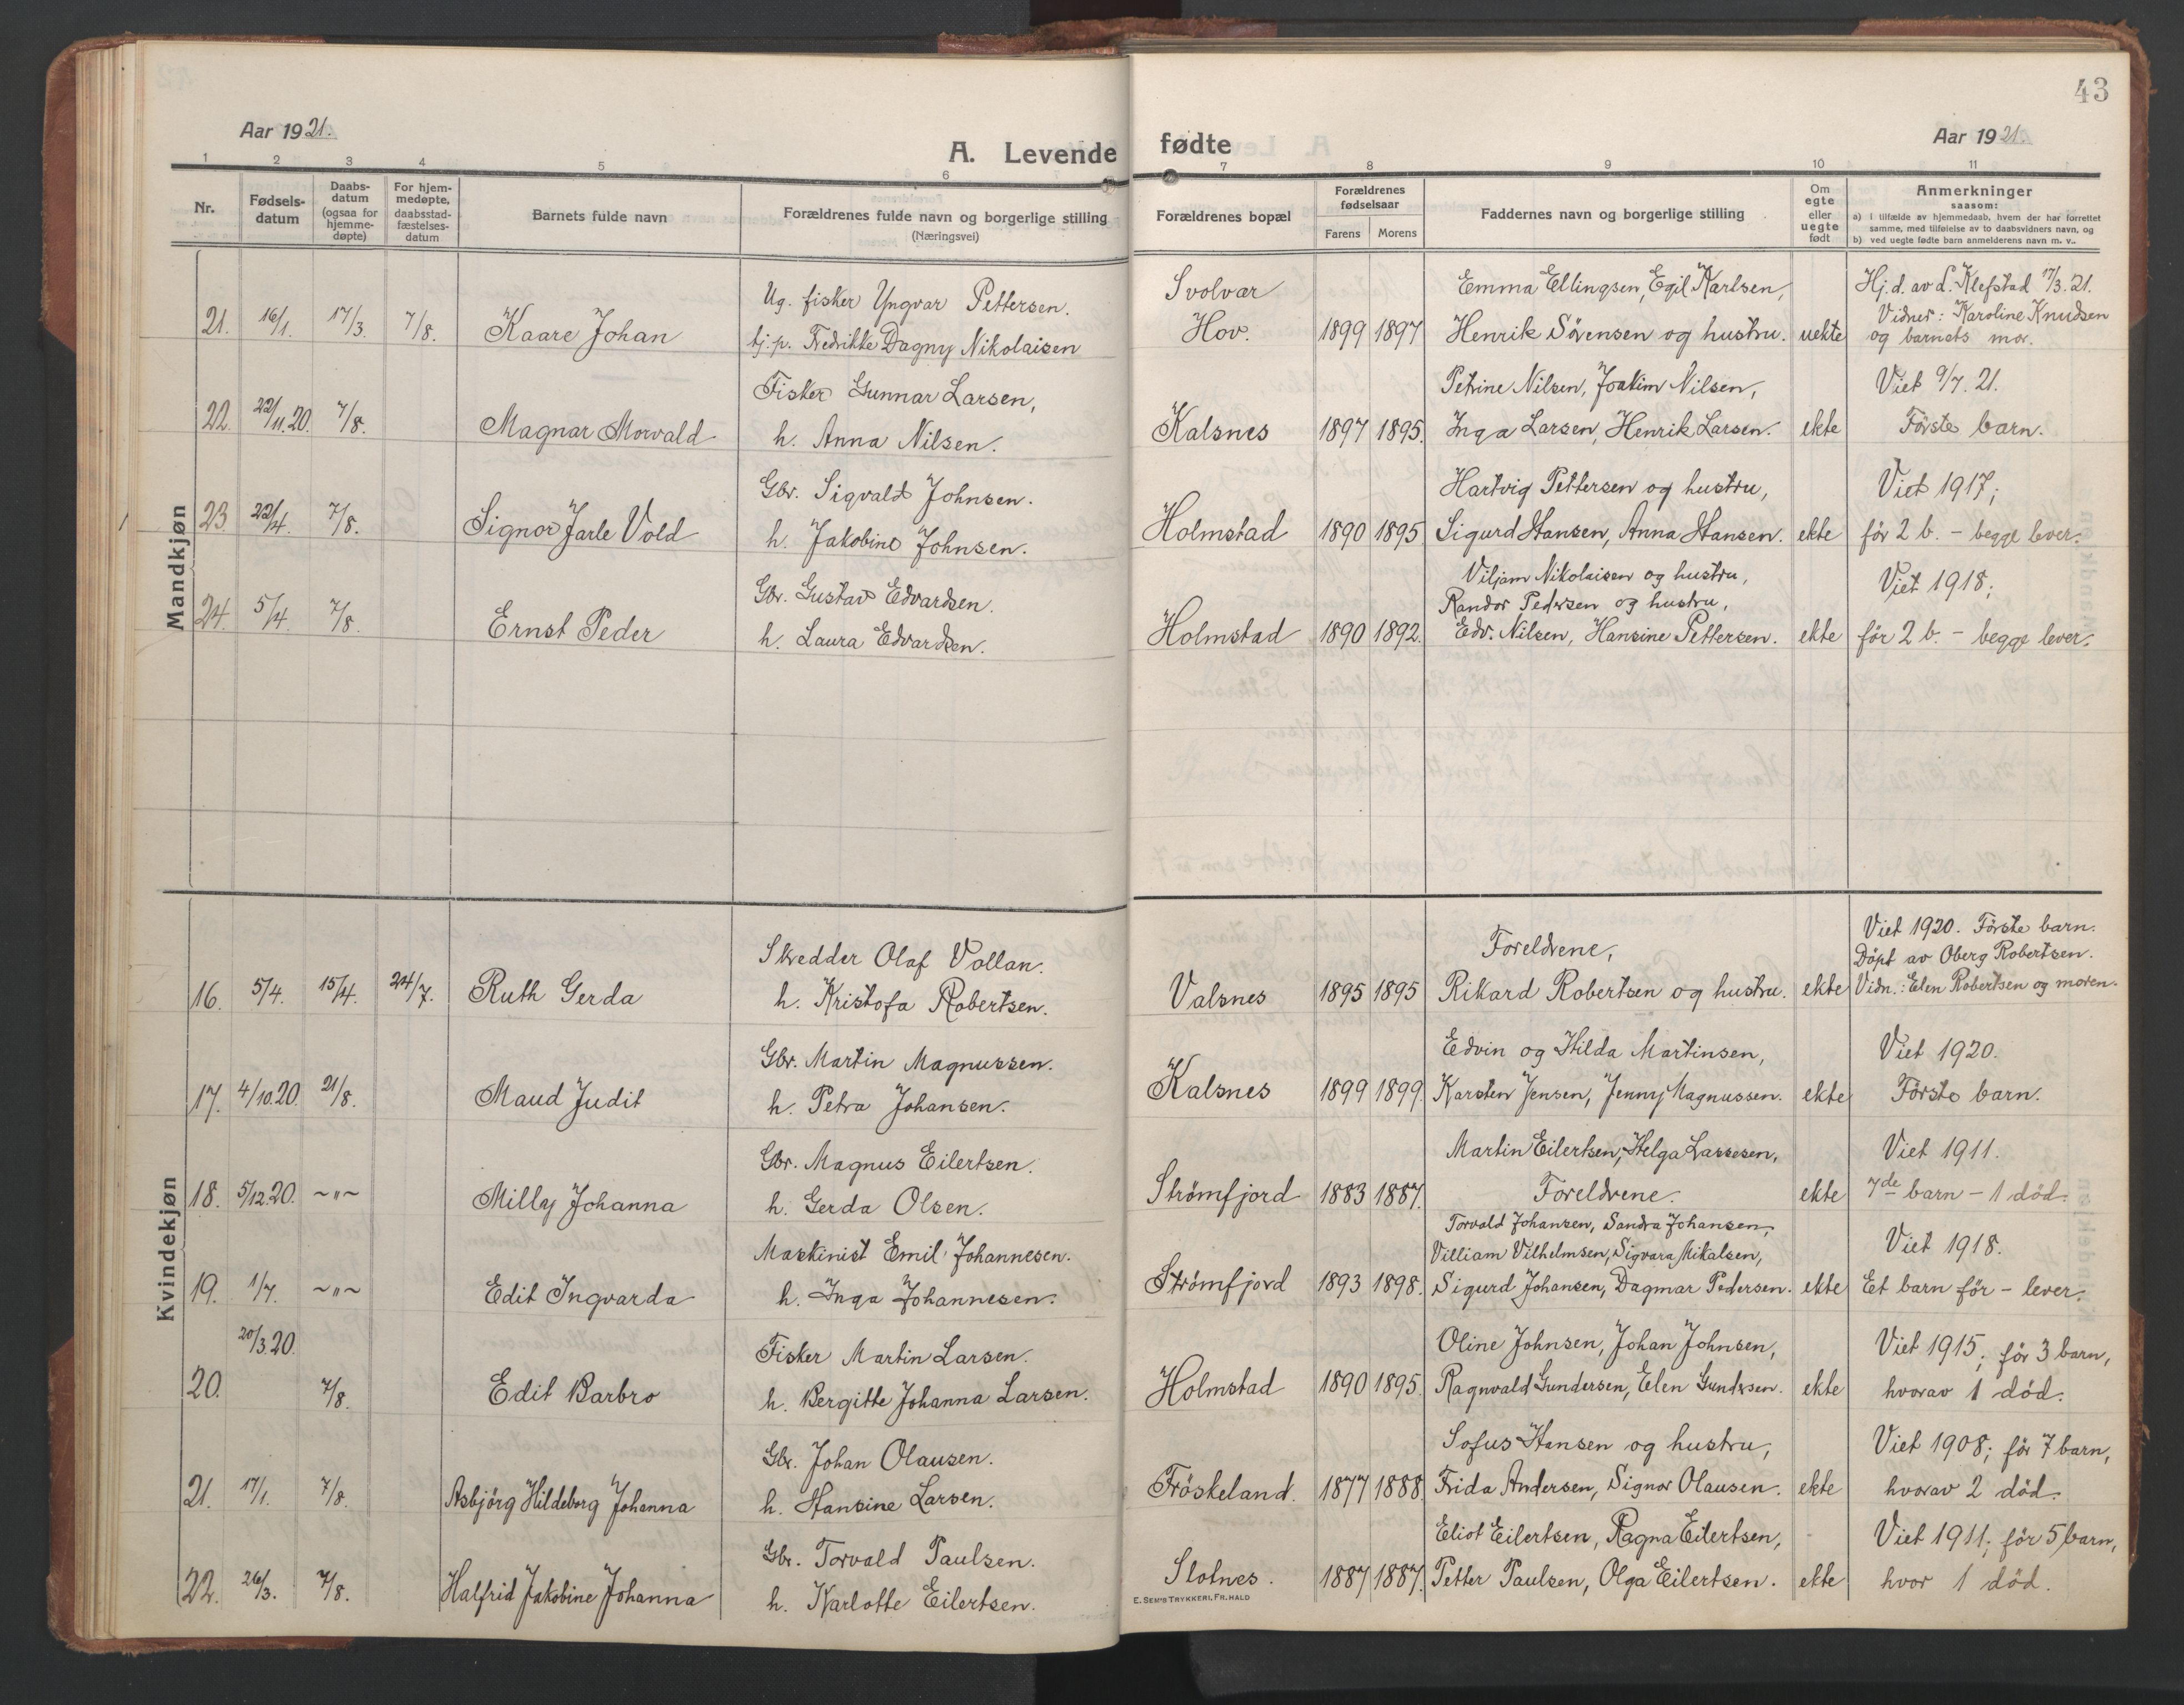 43
Aar 1921.
A. Levende fødte
Aar 1921.
1 2 3 4 5 6 7 8 9 10 11
Nr.
Fødsels-
datum
Daabs-
datum
(ogsaa for
hjemme-
døpte)
For hjem-
medøpte,
daabsstad-
fæstelses-
datum
Barnets fulde navn
Forældrenes fulde navn og borgerlige stilling
(Næringsvei)
Forældrenes bopæl
Forældrenes
fødselsaar
Farens Morens
Faddernes navn og borgerlige stilling
Om
egte
eller
uegte
født
Anmerkninger
saasom:
a) i tilfælde av hjemmedaab, hvem der har forrettet
samme, med tilføielse av to daabsvidners navn, og
b) ved uegte fødte barn anmelderens navn m. v.
Mandkjøn
Ug. fisker Yngvar Pettersen. Svolvær Emma Ellingsen, Egil Karlsen, Hj.d. av L. Klefstad 17/3.21.
Vidner: Karoline Knudsen
21. 16/1. 17/3. 7/8. Kaare Johan tj.p. Fredrikke Dagny Nikolaisen Hov. 1899 1897 Henrik Sörensen og hustru. uekte og barnets mor.
Fisker Gunnar Larsen, Petrine Nilsen, Joakim Nilsen, Viet 9/7. 21.
22. 22/11.20. 7/8. Magnar Morvald h. Anna Nilsen. Kalsnes 1897 1895. Inga Larsen, Henrik Larsen. ekte Förste barn.
Gbr. Sigvald Johnsen. Hartvig Pettersen og hustru, Viet 1917;
23 22/4. 7/8. Signor Jarle Vold h. Jakobine Johnsen. Holmstad 1890 1895 Sigurd Hansen, Anna Hansen. ekte för 2 b. - begge lever.
Viljam Nikolaisen og hustru,
Gbr. Gustav Edvardsen. Randor Pedersen og hustru, Viet 1918;
24. 5/4. 7/8. Ernst Peder h. Laura Edvardsen. Holmstad 1890 1892. Edv. Nilsen, Hansine Pettersen. ekte för 2 b. - begge lever.
Kvindekjøn
Viet 1920. Förste barn.
Skredder Olaf Vollan. Foreldrene, Döpt av Oberg Robertsen.
16. 5/4. 15/4. 24/7. Ruth Gerda h. Kristofa Robertsen. Valsnes 1895 1895 Rikard Robertsen og hustru. ekte Vidn.: Elen Robertsen og moren.
Gbr. Martin Magnussen. Edvin og Hilda Martinsen, Viet 1920.
17. 4/10.20. 21/8. Maud Judit h. Petra Johansen. Kalsnes 1899 1899. Karsten Jensen, Jenny Magnussen. ekte Förste barn.
Gbr. Magnus Eilertsen. Martin Eilertsen, Helga Larsesen, Viet 1911.
18. 5/12.20. ~"~ Milly Johanna h. Gerda Olsen. Strömfjord 1883 1887. Foreldrene. ekte 7de barn - 1 död.
Torvald Johansen, Sandra Johansen,
Maskinist Emil Johannesen. Villiam Vilhelmsen, Sigvara Mikalsen, Viet 1918.
19. 1/7. ~"~ Edit Ingvarda h. Inga Johannesen. Strömfjord 1893 1898. Sigurd Johansen, Dagmar Pedersen. ekte Et barn för - lever.
20/3.20. Fisker Martin Larsen. Oline Johnsen, Johan Johnsen, Viet 1915; för 3 barn,
20. 7/8. Edit Barbro h. Bergitte Johanna Larsen. Holmstad 1890 1895. Ragnvald Gundersen, Elen Gundersen. ekte hvorav 1 död.
Gbr. Johan Olausen. Sofus Hansen og hustru, Viet 1908; för 7 barn,
21. 17/1. 7/8. Asbjörg Hildeborg Johanna h. Hansine Larsen. Fröskeland. 1877 1888. Frida Andersen, Signor Olausen. ekte hvorav 2 död.
Gbr. Torvald Paulsen. Eliot Eilertsen, Ragna Eilertsen, Viet 1911; för 5 barn,
22. 26/3. 7/8. Halfrid Jakobine Johanna h. Karlotte Eilertsen. Slotnes. 1887 1887. Petter Paulsen, Olga Eilertsen. ekte hvor 1 död.
E. SEM'S TRYKKERI, FR. HALD